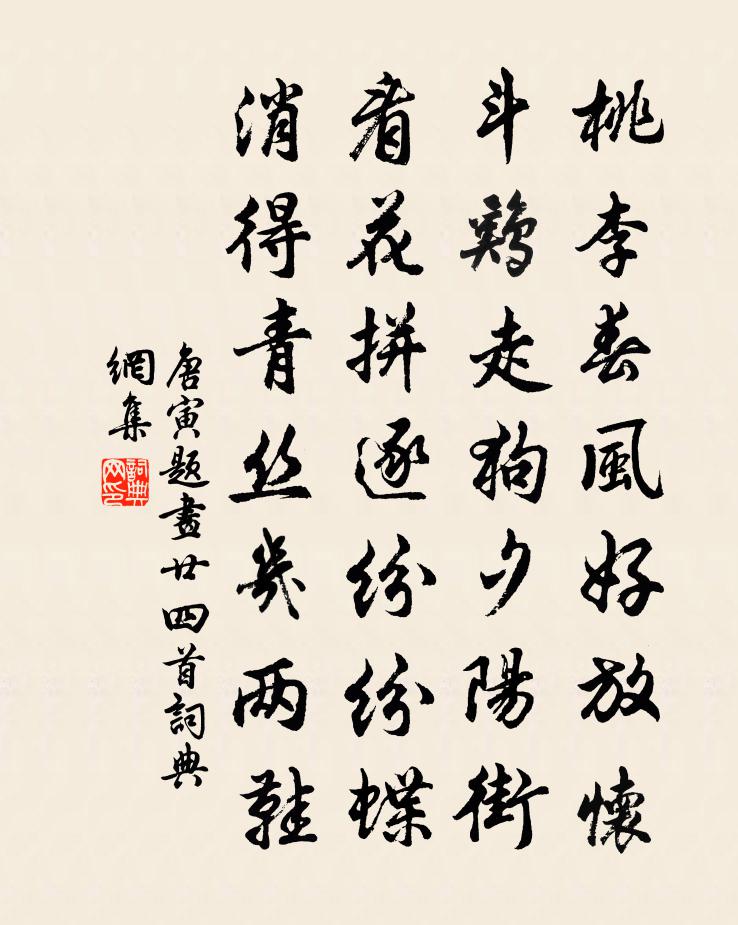 桃李春風好放懷
斗鷄走狗夕陽街
看花拼逐紛紛蝶
消得青丝幾两鞋
唐寅題畫廿四首詞典
網集
詞典
网印